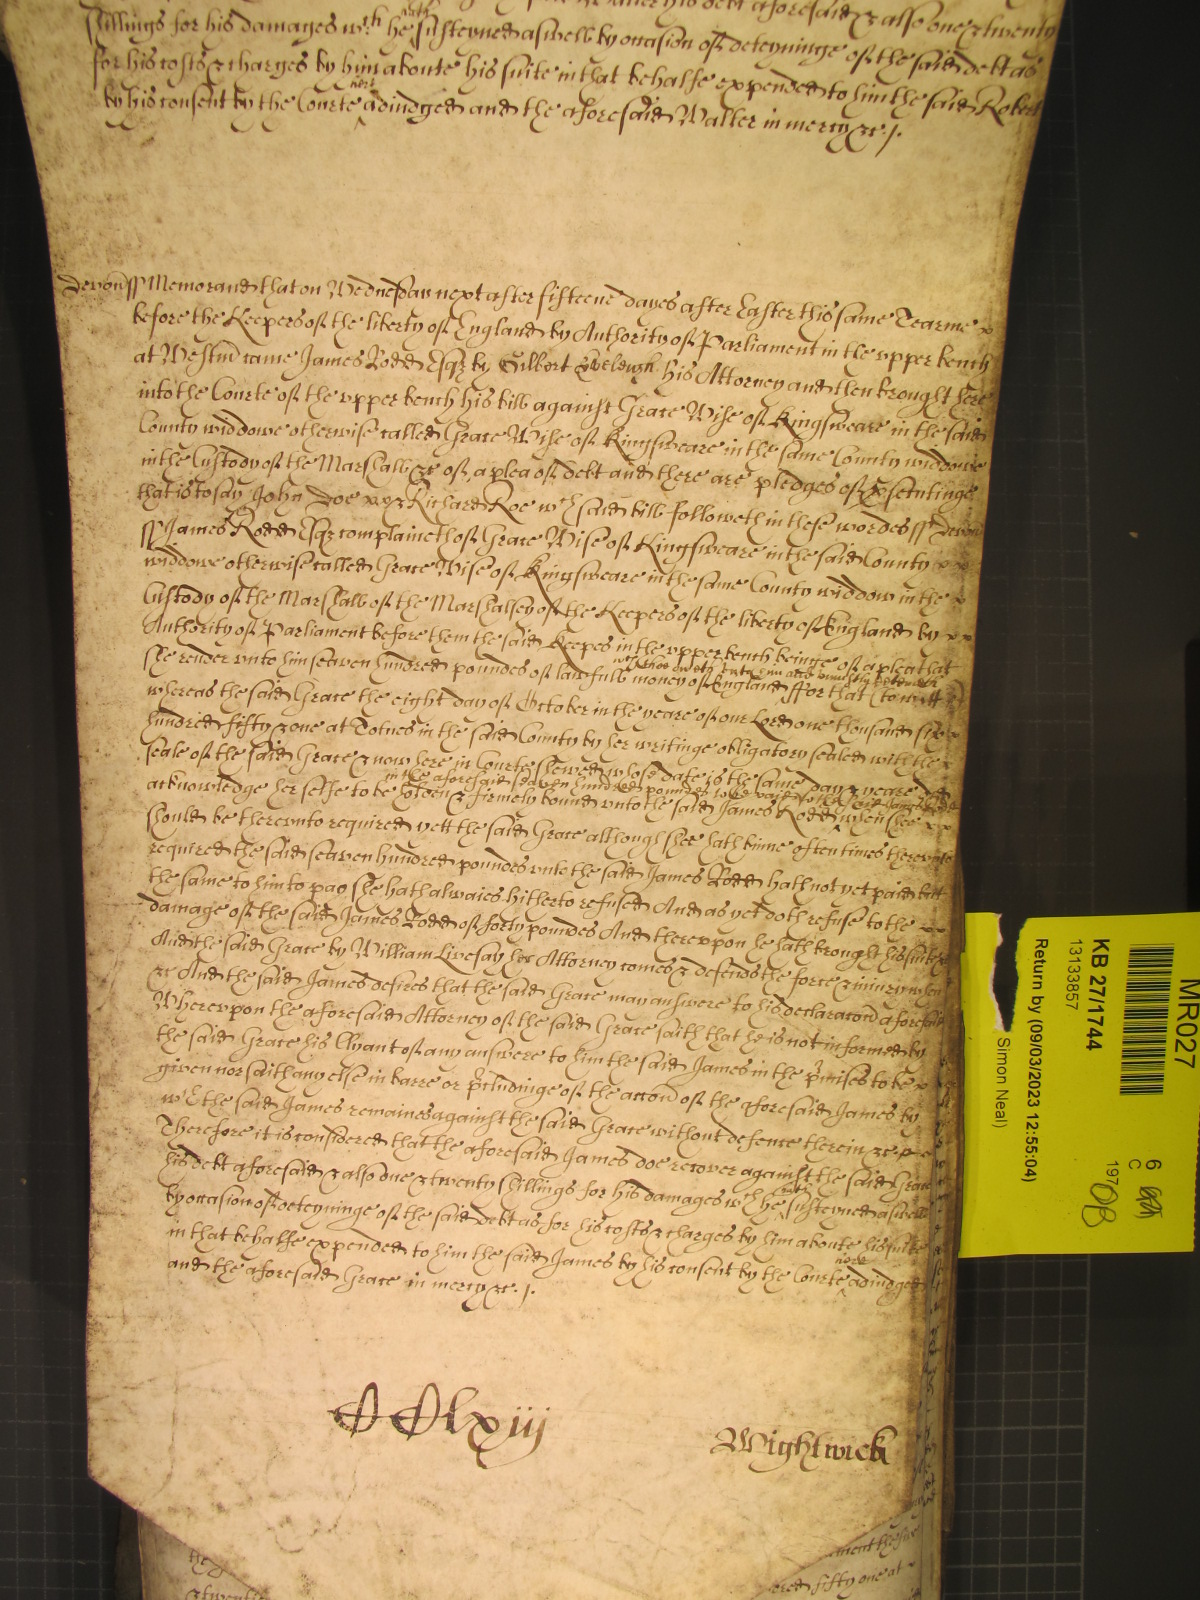 his debt aforesaid & also one & twenty
shillings for his damages wch he hath susteyned aswell by occasion of deteyninge of the said debt as
for his costs & charges by him aboute his suite in that behalfe expended to him the said Robert
by his consent by the Courte here adiudged and the aforesaid Walter in mercy &c. j.
Devon ss Memorand that on Wednesday next after fifteene dayes after Easter this same Tearme
before the Keepers of the liberty of England by Authority of Parliament in the vpper bench
at Westm came James Rodd Esqr by Gilbert his Attorney and then brought here
into the Courte of the vpper bench his bill against Grace Wise of Kingsweare in the said
County widdowe otherwise called Grace Wise of Kingsweare in the same County widdowe
in the Custody of the Marshall &c of a plea of debt and there are pledges of prsecutinge
that is to say John Doe & Richard Roe wch said bill followeth in these wordes ss Devon
ss James Rodd Esqr complaineth of Grace Wise of Kingsweare in the said County
widdowe otherwise called Grace Wise of Kingsweare in the same County widdow in the
Custody of the Marshall of the Marshalsey of the Keepers of the liberty of England by
Authority of Parliament before them the said Keepes in the vpper bench beinge of a plea that
She render vnto him seaven hundred poundes of lawfull money of England wch shee oweth vnto him and vniustly deteyneth ffor that (to witt)
whereas the said Grace the eight day of October in the yeare of our Lord one thousand six
hundred fifty & one at Totnes in the said County by her writinge obligatory sealed with the
seale of the said Grace & now here in Courte shewed whose date is the same day & yeare did
acknowledge her selfe to be holden & firmely bound vnto the said James Rodd in the aforesaid seaven hundred poundes to be paid to the said James when shee
should be therevnto required yett the said Grace although shee hath binne often times therevnto
required the said seaven hundred poundes vnto the said James Rodd hath not yet paid but
the same to him to pay She hath alwaies hitherto refused And as yet doth refuse to the
damage of the said James Rodd of forty poundes And therevpon he hath brought his suite &c
And the said Grace by William Livesay her Attorney comes & defends the force & iniury when
&c And the said James desires that the said Grace may answere to his declaracon aforesaid
Wherevpon the aforesaid Attorney of the said Grace saith that he is not informed by
the said Grace his Clyant of any answere to him the said James in the prmises to be
given nor saith any else in barre or prcludinge of the accon of the aforesaid James by
wch the said James remaines against the said Grace without defence therein &c
Therefore it is considered that the aforesaid James doe recover against the said Grace
his debt aforesaid & also one & twenty shillings for his damages wch he hath susteyned aswell
by occasion of deteyninge of the said debt as for his costs & charges by him aboute his suite
in that behalfe expended to him the said James by his consent by the Courte here adiudged
and the aforesaid Grace in mercy &c. j.
CClxiij
Wightwick
MR027
6
C
197
KB 27/1744
13133857
Return by (09/03/2023 12:55:04)
Simon Neal)